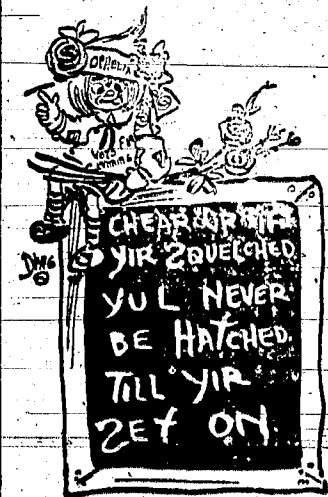 OPHELIA
VOTES FR
WIMMING
CHEAR UP IF
YIR SQUELCHED
YUL NEVER
BE HATCHED
TILL YIR
SET ON